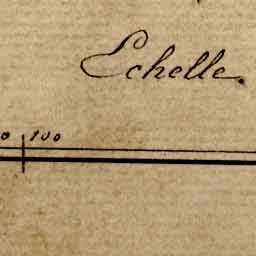 Echelle.
0 100